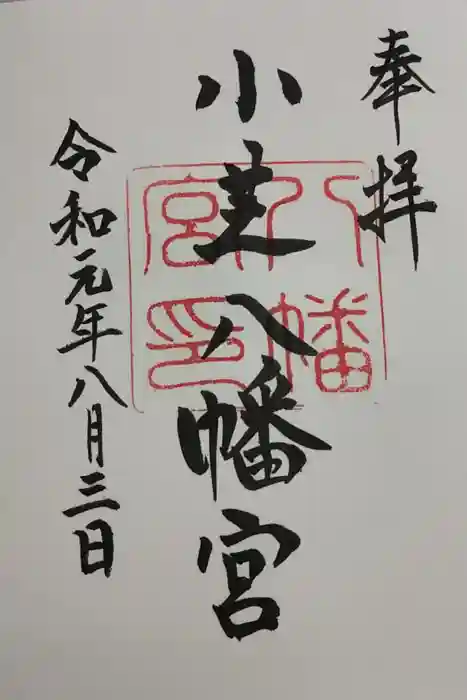 奉拝
小芝八幡宮
八幡
宮印
令和元年八月三日